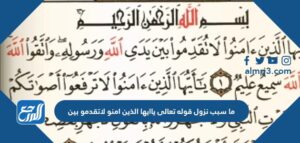 بِسْمِ اللَّهِ الرَّحْمَٰنِ الرَّحِيمِ
يَٰٓأَيُّهَا الَّذِينَ ءَامَنُوا۟ لَا تُقَدِّمُوا۟ بَيْنَ يَدَىِ اللَّهِ وَرَسُولِهِۦ وَاتَّقُوا۟ اللَّهَ
سَمِيعٌ عَلِيمٌ ١ يَٰٓأَيُّهَا الَّذِينَ ءَامَنُوا۟ لَا تَرْفَعُوٓا۟ أَصْوَٰتَكُمْ
almrj3.com
ما سبب نزول قوله تعالى ياايها الذين امنو لاتقدمو بين
المرجع